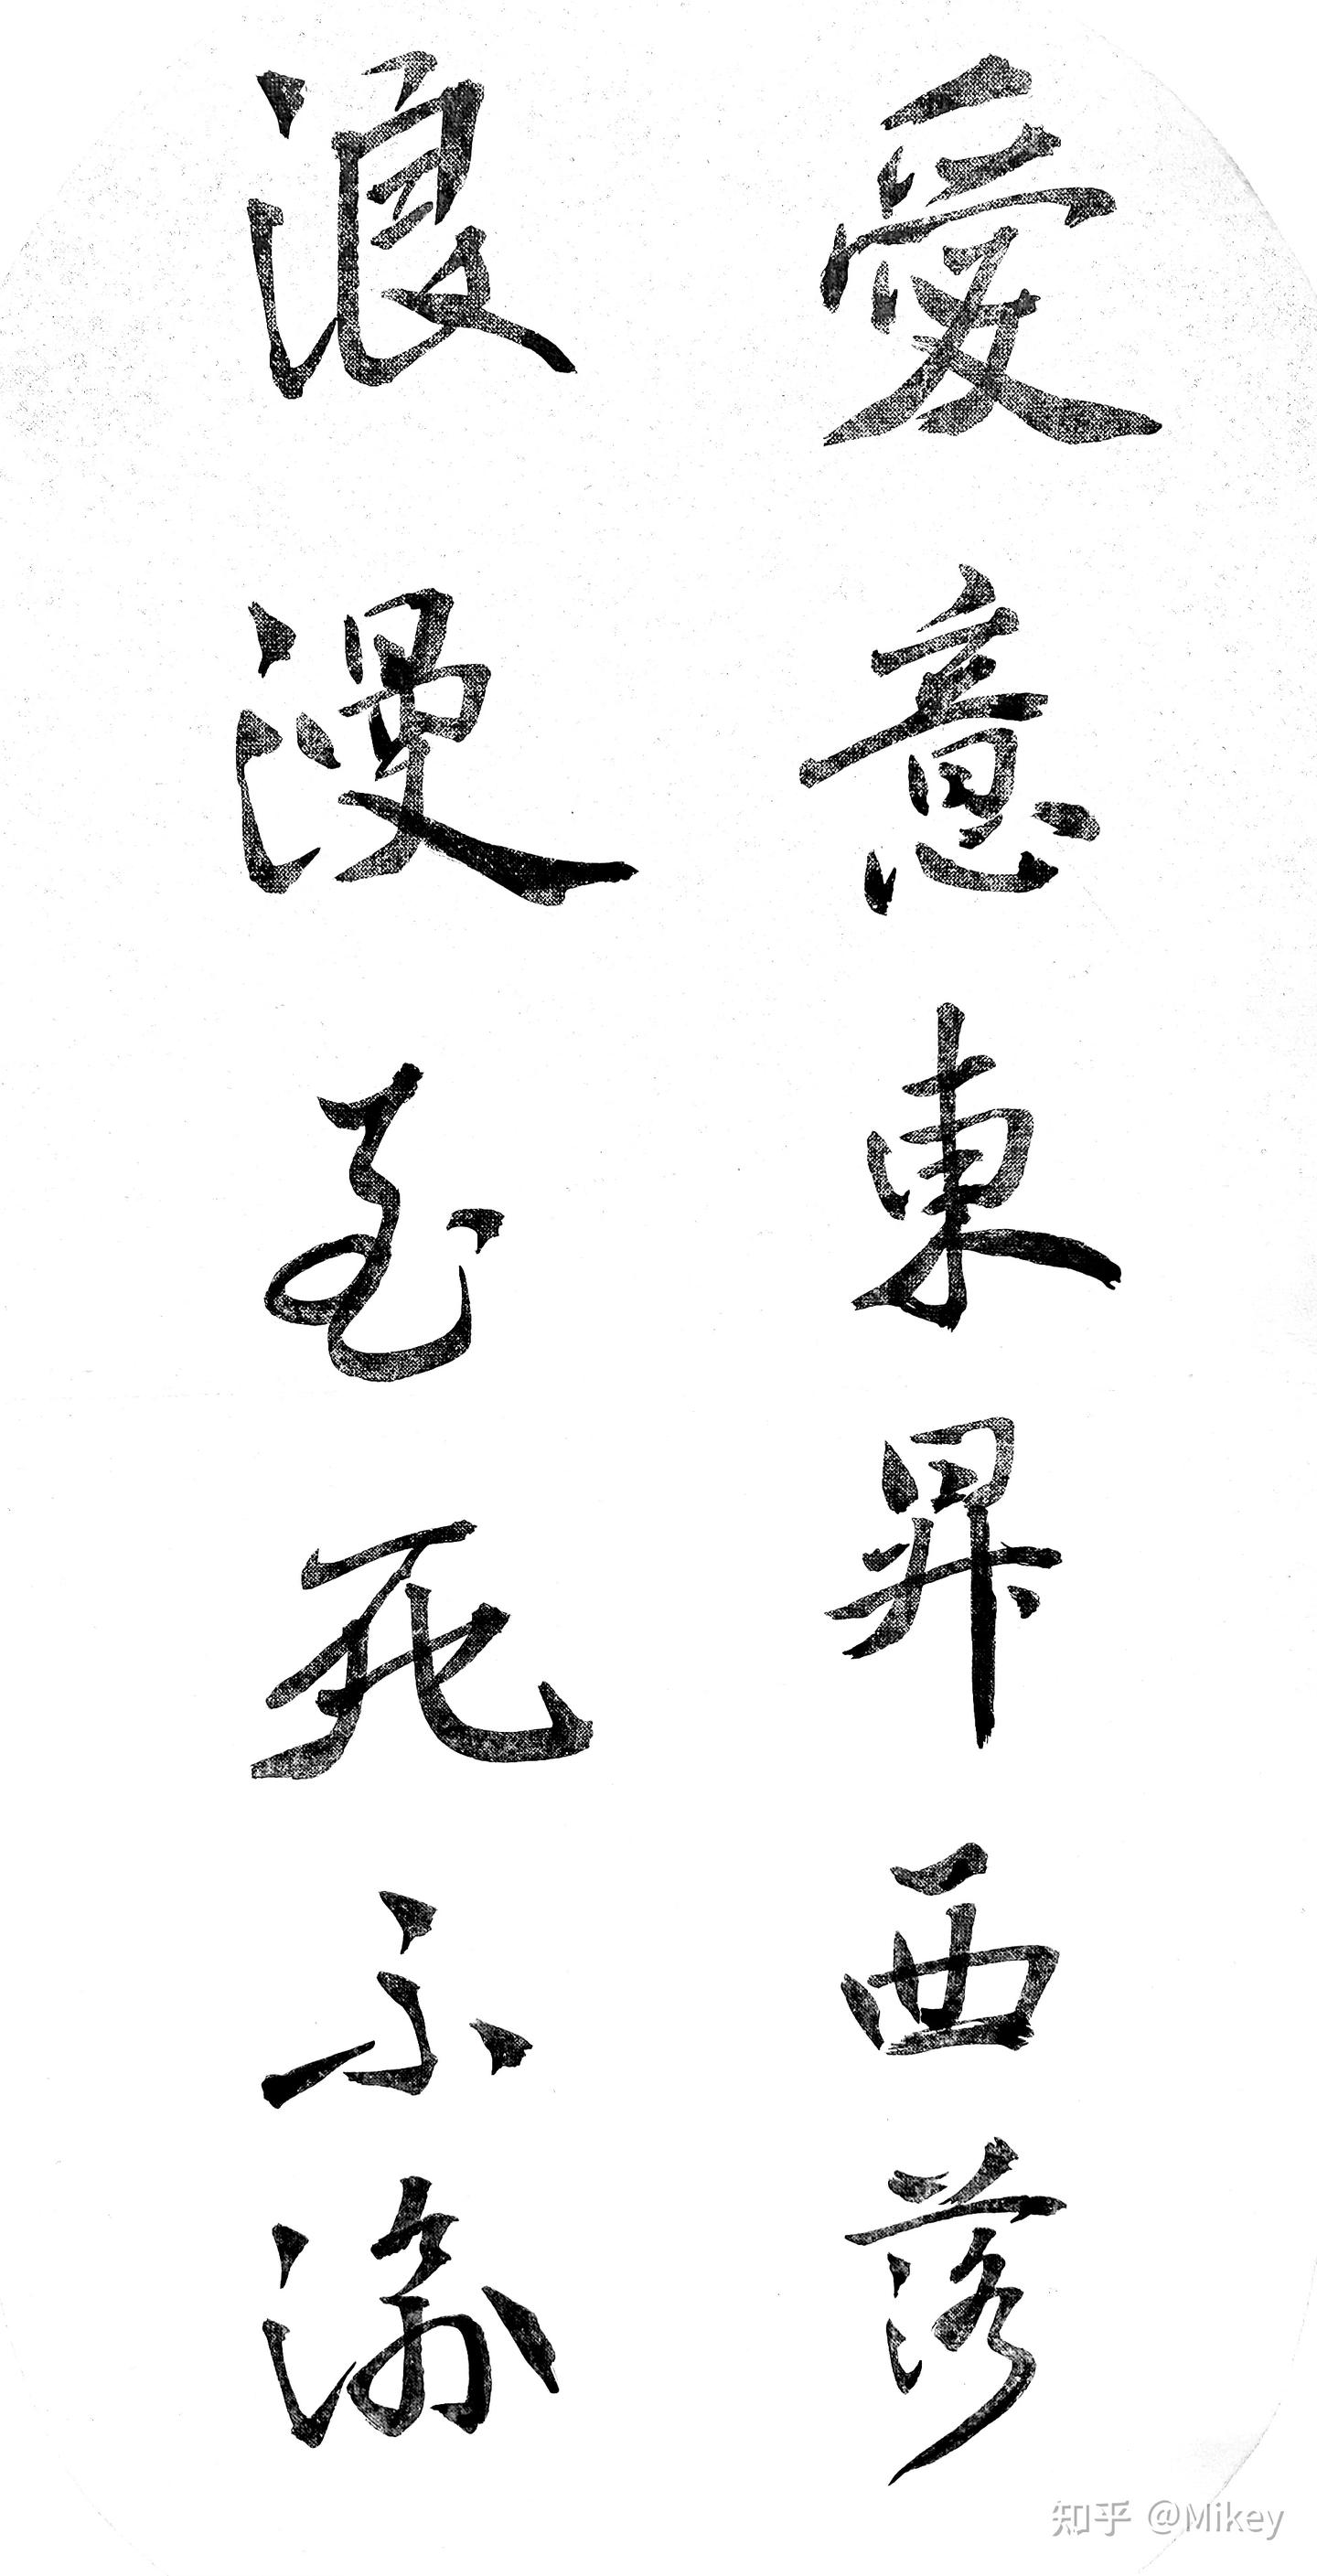 愛意東昇西落
浪漫至死不渝
知乎 @Mikey